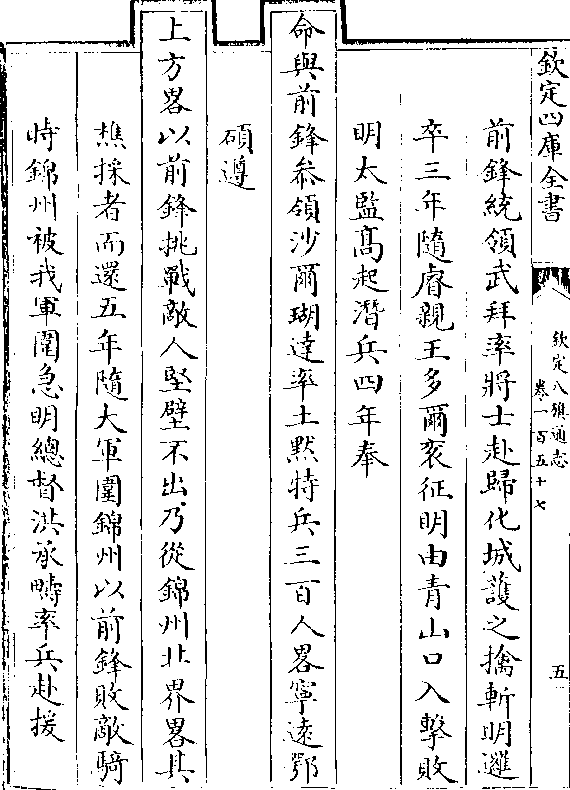 欽定四庫全書
欽定八旗通志
卷一百五十七
五
前鋒統領武拜率將士赴歸化城護之擒斬明邏
卒三年隨睿親王多爾袞征明由青山口入擊敗
明太監髙起潛兵四年奉
命與前鋒叅領沙爾瑚達率土黙特兵三百人畧寧逺鄂
碩遵
上方畧以前鋒挑戰敵人堅壁不出乃從錦州北界畧其
樵採者而還五年隨大軍圍錦州以前鋒敗敵騎
時錦州被我軍圍急明總督洪承疇率兵赴援